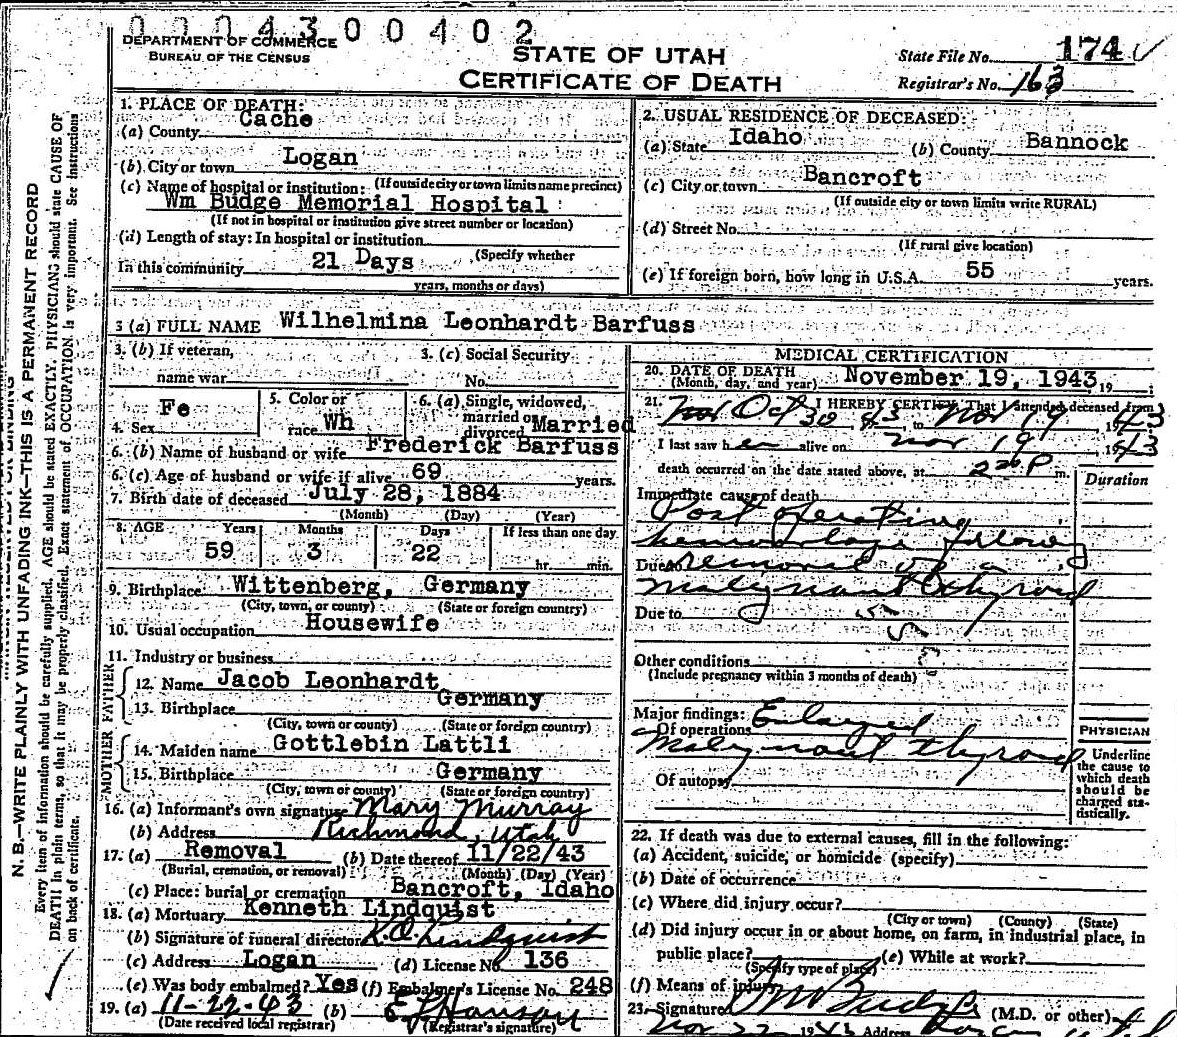 0004300402
DEPARTMENT OF COMMERCE
BUREAU OF THE CENSUS
STATE OF UTAH
CERTIFICATE OF DEATH
State File No. 174
Registrar's No. 163
1. PLACE OF DEATH:
(a) County Cache
(b) City or town Logan
(If outside city or town limits name precinct)
(c) Name of hospital or institution:
Wm Budge Memorial Hospital
(If not in hospital or institution give street number or location)
(d) Length of stay: In hospital or institution
(Specify whether
In this community 21 Days
years, months or days)
2. USUAL RESIDENCE OF DECEASED:
(a) State Idaho (b) County Bannock
(c) City or town Bancroft
(If outside city or town limits write RURAL)
(d) Street No.
(If rural give location)
(e) If foreign born, how long in U.S.A. 55 years.
3 (a) FULL NAME Wilhelmina Leonhardt Barfuss
3. (b) If veteran,
name war
3. (c) Social Security
No.
4. Sex Fe
5. Color or
race Wh
6. (a) Single, widowed,
married or
divorced Married
6. (b) Name of husband or wife Frederick Barfuss
6. (c) Age of husband or wife if alive 69 years.
7. Birth date of deceased July 28, 1884
(Month) (Day) (Year)
8. AGE Years Months Days If less than one day
59 3 22 hr. min.
9. Birthplace Wittenberg, Germany
(City, town, or county) (State or foreign country)
10. Usual occupation Housewife
11. Industry or business
FATHER
12. Name Jacob Leonhardt
13. Birthplace Germany
(City, town or county) (State or foreign country)
MOTHER
14. Maiden name Gottlebin Lattli
15. Birthplace Germany
(City, town or county) (State or foreign country)
16. (a) Informant's own signature Mary Murray
(b) Address Richmond, Utah
17. (a) Removal (b) Date thereof 11/22/43
(Burial, cremation, or removal) (Month) (Day) (Year)
(c) Place: burial or cremation Bancroft, Idaho
18. (a) Mortuary Kenneth Lindquist
(b) Signature of funeral director K.O. Lindquist
(c) Address Logan (d) License No. 136
(e) Was body embalmed? Yes (f) Embalmer's License No. 248
19. (a) 11-22-43 (b)
(Date received local registrar) (Registrar's signature)
MEDICAL CERTIFICATION
20. DATE OF DEATH
(Month, day, and year) November 19, 1943, 19 ;
21. I HEREBY CERTIFY, That I attended deceased from
Oct 30 43 to Nov 19 1943
I last saw her alive on Nov 19, 1943
death occurred on the date stated above, at 2 P m.
Duration
Immediate cause of death
Post operating
hemorrhage following
Due to removal of a
malignant thyroid
Due to
Other conditions
(Include pregnancy within 3 months of death)
Major findings: Enlarged
Of operations
malignant thyroid
Of autopsy
PHYSICIAN
Underline
the cause to
which death
should be
charged sta-
tistically.
22. If death was due to external causes, fill in the following:
(a) Accident, suicide, or homicide (specify)
(b) Date of occurrence
(c) Where did injury occur?
(City or town) (County) (State)
(d) Did injury occur in or about home, on farm, in industrial place, in
public place? (e) While at work?
(Specify type of place)
(f) Means of injury
23. Signature (M.D. or other)
Nov 22 1943 Address Logan Utah
N. B.—WRITE PLAINLY WITH UNFADING INK—THIS IS A PERMANENT RECORD
Every item of information should be carefully supplied. AGE should be stated EXACTLY. PHYSICIAN should state CAUSE OF
DEATH in plain terms, so that it may be properly classified. Exact statement of OCCUPATION is very important. See instructions
on back of certificate.